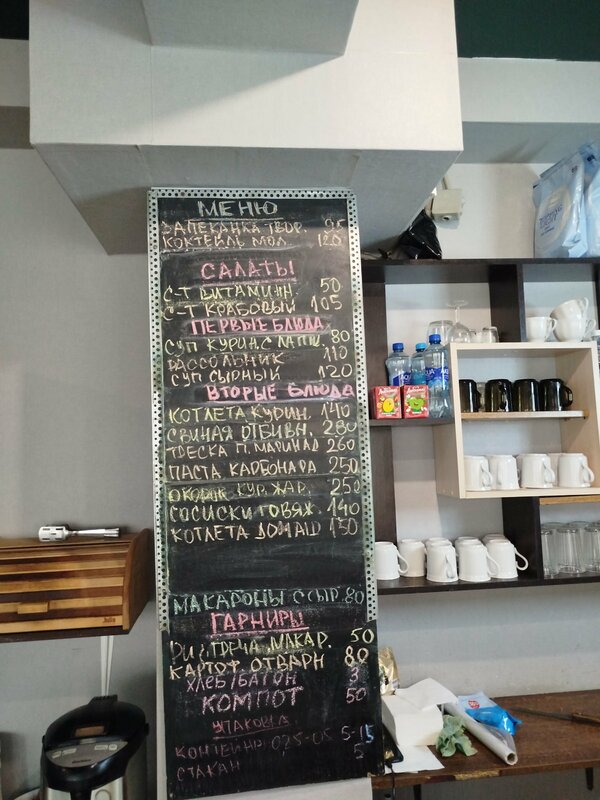 МЕНЮ
ЗАПЕКАНКА ТВОР. 95
КОКТЕЙЛЬ МОЛ. 120
САЛАТЫ
С-Т ВИТАМИНН. 50
С-Т КРАБОВЫЙ 105
ПЕРВЫЕ БЛЮДА
СУП КУРИН. С ЛАПШ. 80
РАССОЛЬНИК 110
СУП СЫРНЫЙ 120
ВТОРЫЕ БЛЮДА
КОТЛЕТА КУРИН. 140
СВИНАЯ ОТБИВН. 280
ТРЕСКА П. МАРИНАД 260
ПАСТА КАРБОНАРА 250
КУР. ЖАР. 250
СОСИСКИ ГОВЯЖ. 140
КОТЛЕТА ДОМАШ 150
МАКАРОНЫ С СЫР. 80
ГАРНИРЫ
РИС, ГРЕЧА, МАКАР. 50
КАРТОФ. ОТВАРН 80
ХЛЕБ/БАТОН 3
КОМПОТ 50
УПАКОВКА
КОНТЕЙНЕР 025-05 5-15
СТАКАН 5